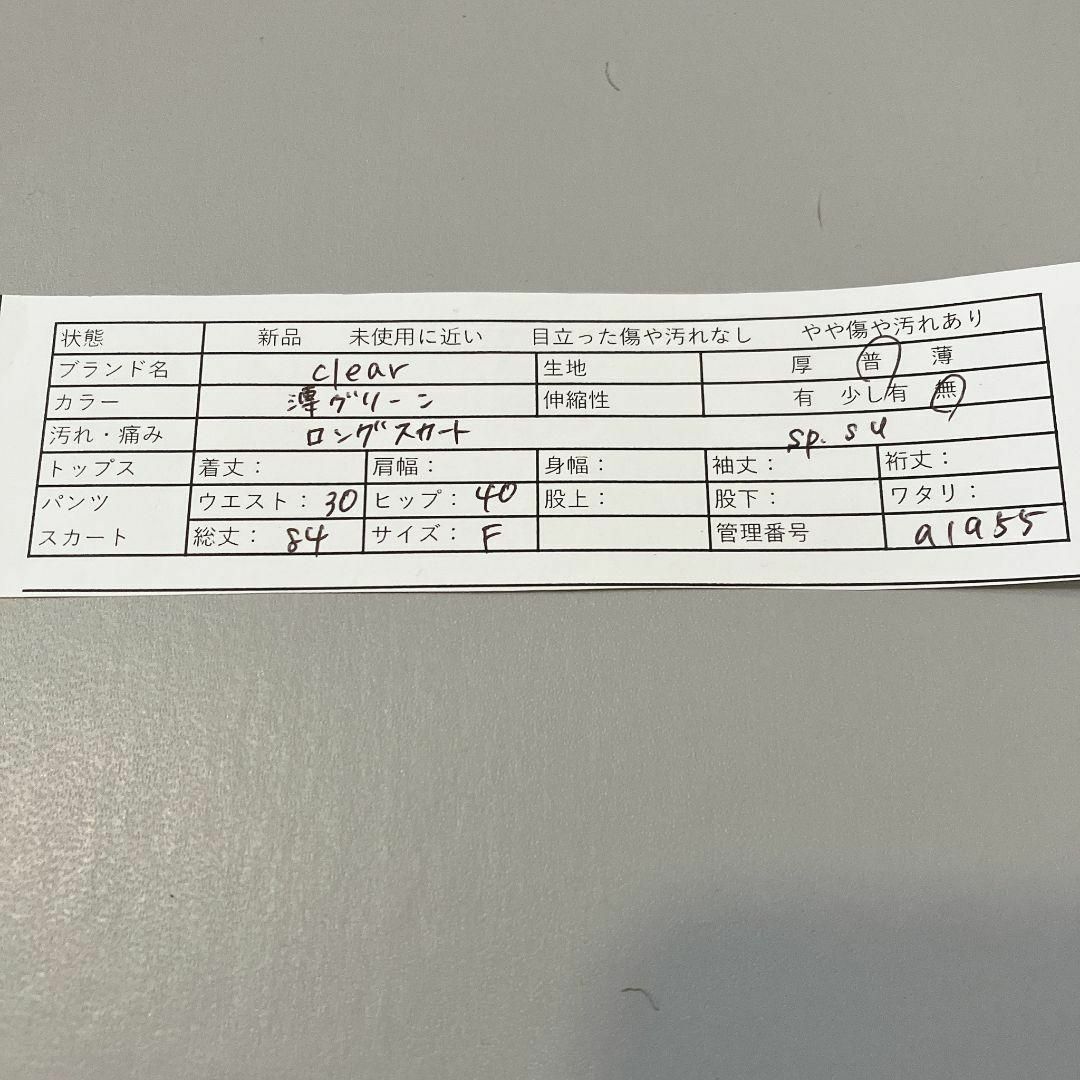 状態 新品 未使用に近い 目立った傷や汚れなし やや傷や汚れあり
ブランド名 clear 生地 厚 普 薄
カラー 薄グリーン 伸縮性 有 少し有 無
汚れ・痛み ロングスカート sp. su
トップス 着丈： 肩幅： 身幅： 袖丈： 裄丈：
パンツ ウエスト：30 ヒップ：40 股上： 股下： ワタリ：
スカート 総丈：84 サイズ：F 管理番号 a1a55